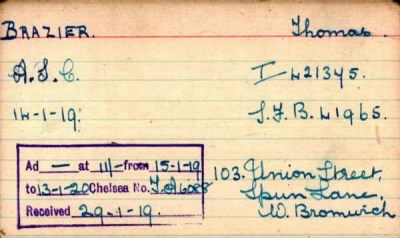 BRAZIER. Thomas.
A.S.C. T 421345.
14-1-19. S.F.B. 41965.
Ad — at 11/- from 15-1-19
to 13-1-20 Chelsea No.
Received 29-1-19.
103. Union Street,
Spun Lane,
W. Bromwich